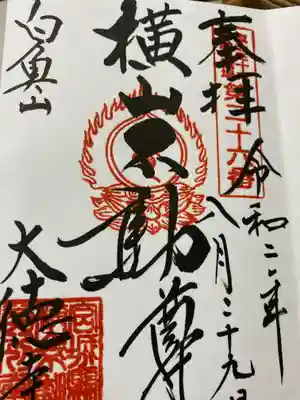 奉拝
令和二年八月二十九日
横山不動尊
白魚山
大徳寺